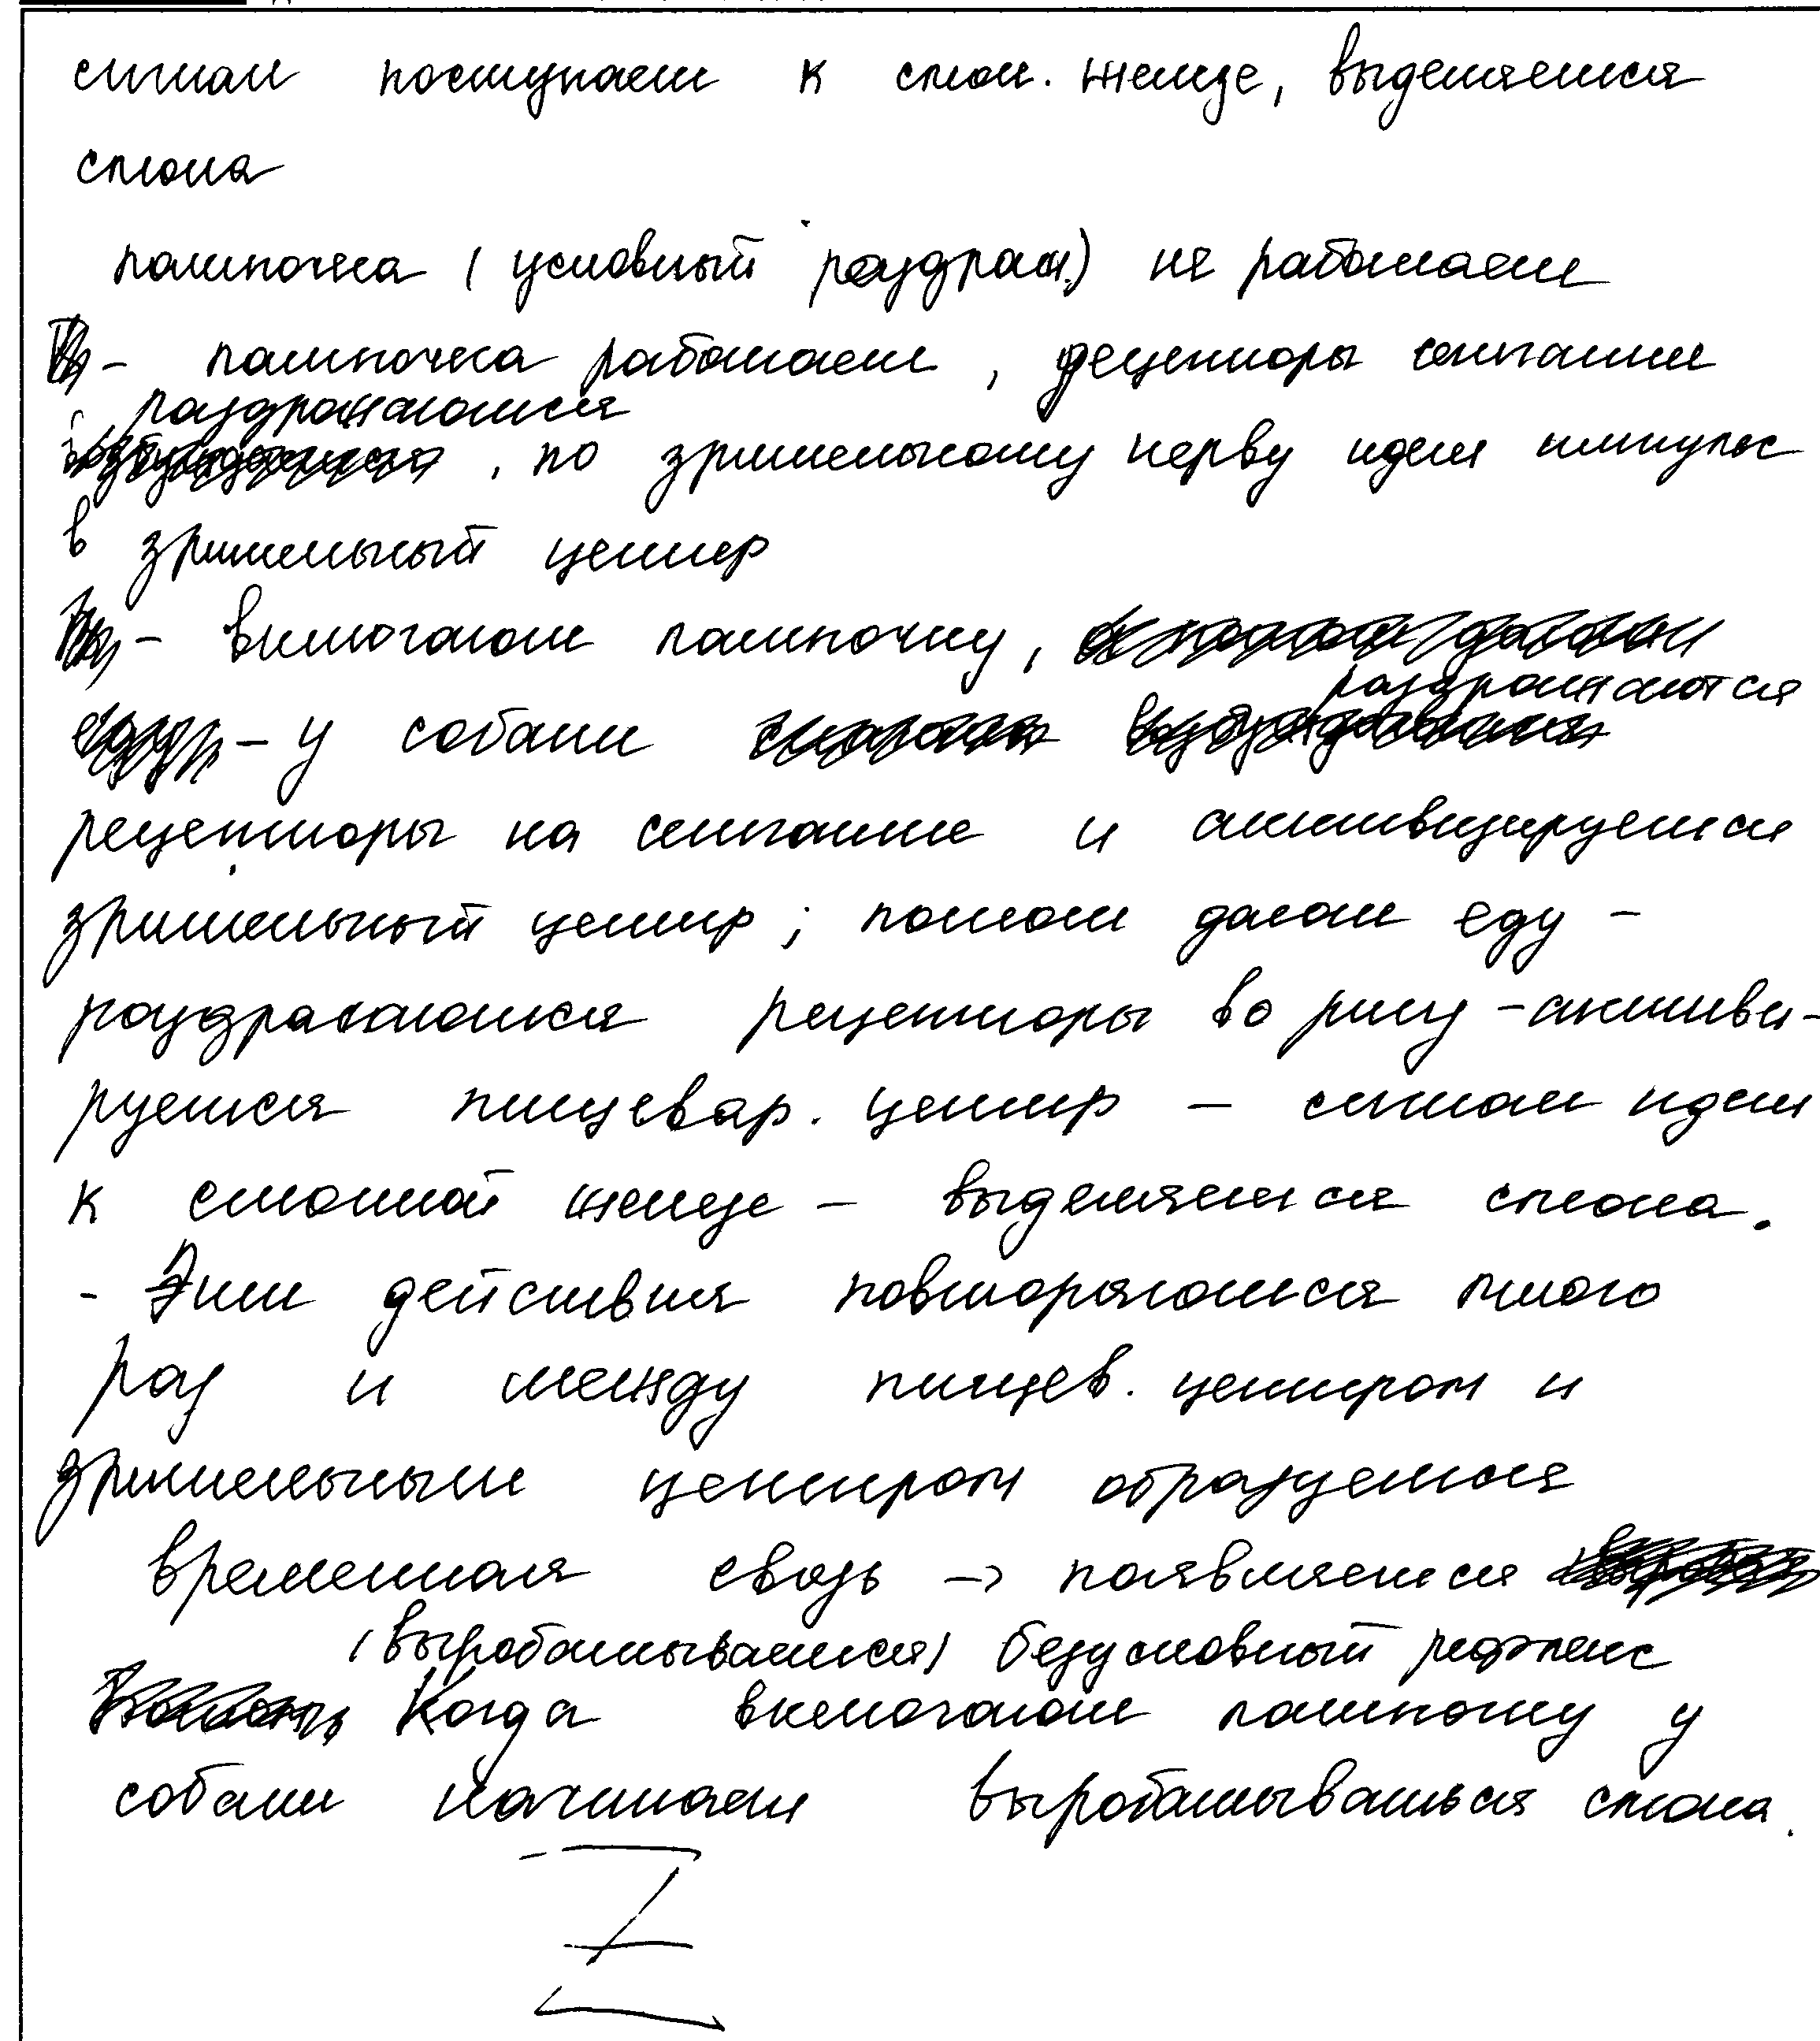 сигнал поступает к слюн. железе, выделяется
слюна
лампочка (условный раздраж.) не работает
- лампочка работает, рецепторы сетчатки
раздражаются
, по зрительному нерву идет импульс
в зрительный центр
- включают лампочку,
раздражаются
- у собаки
рецепторы на сетчатке и активизируется
зрительный центр; потом дают еду -
раздражаются рецепторы во рту - активи-
руется пищевар. центр - сигнал идет
к слюнной железе - выделяется слюна.
- Эти действия повторяются много
раз и между пищев. центром и
зрительным центром образуется
временная связь → появляется
(вырабатывается) безусловный рефлекс
Когда включают лампочку у
собаки начинает вырабатываться слюна.
Z